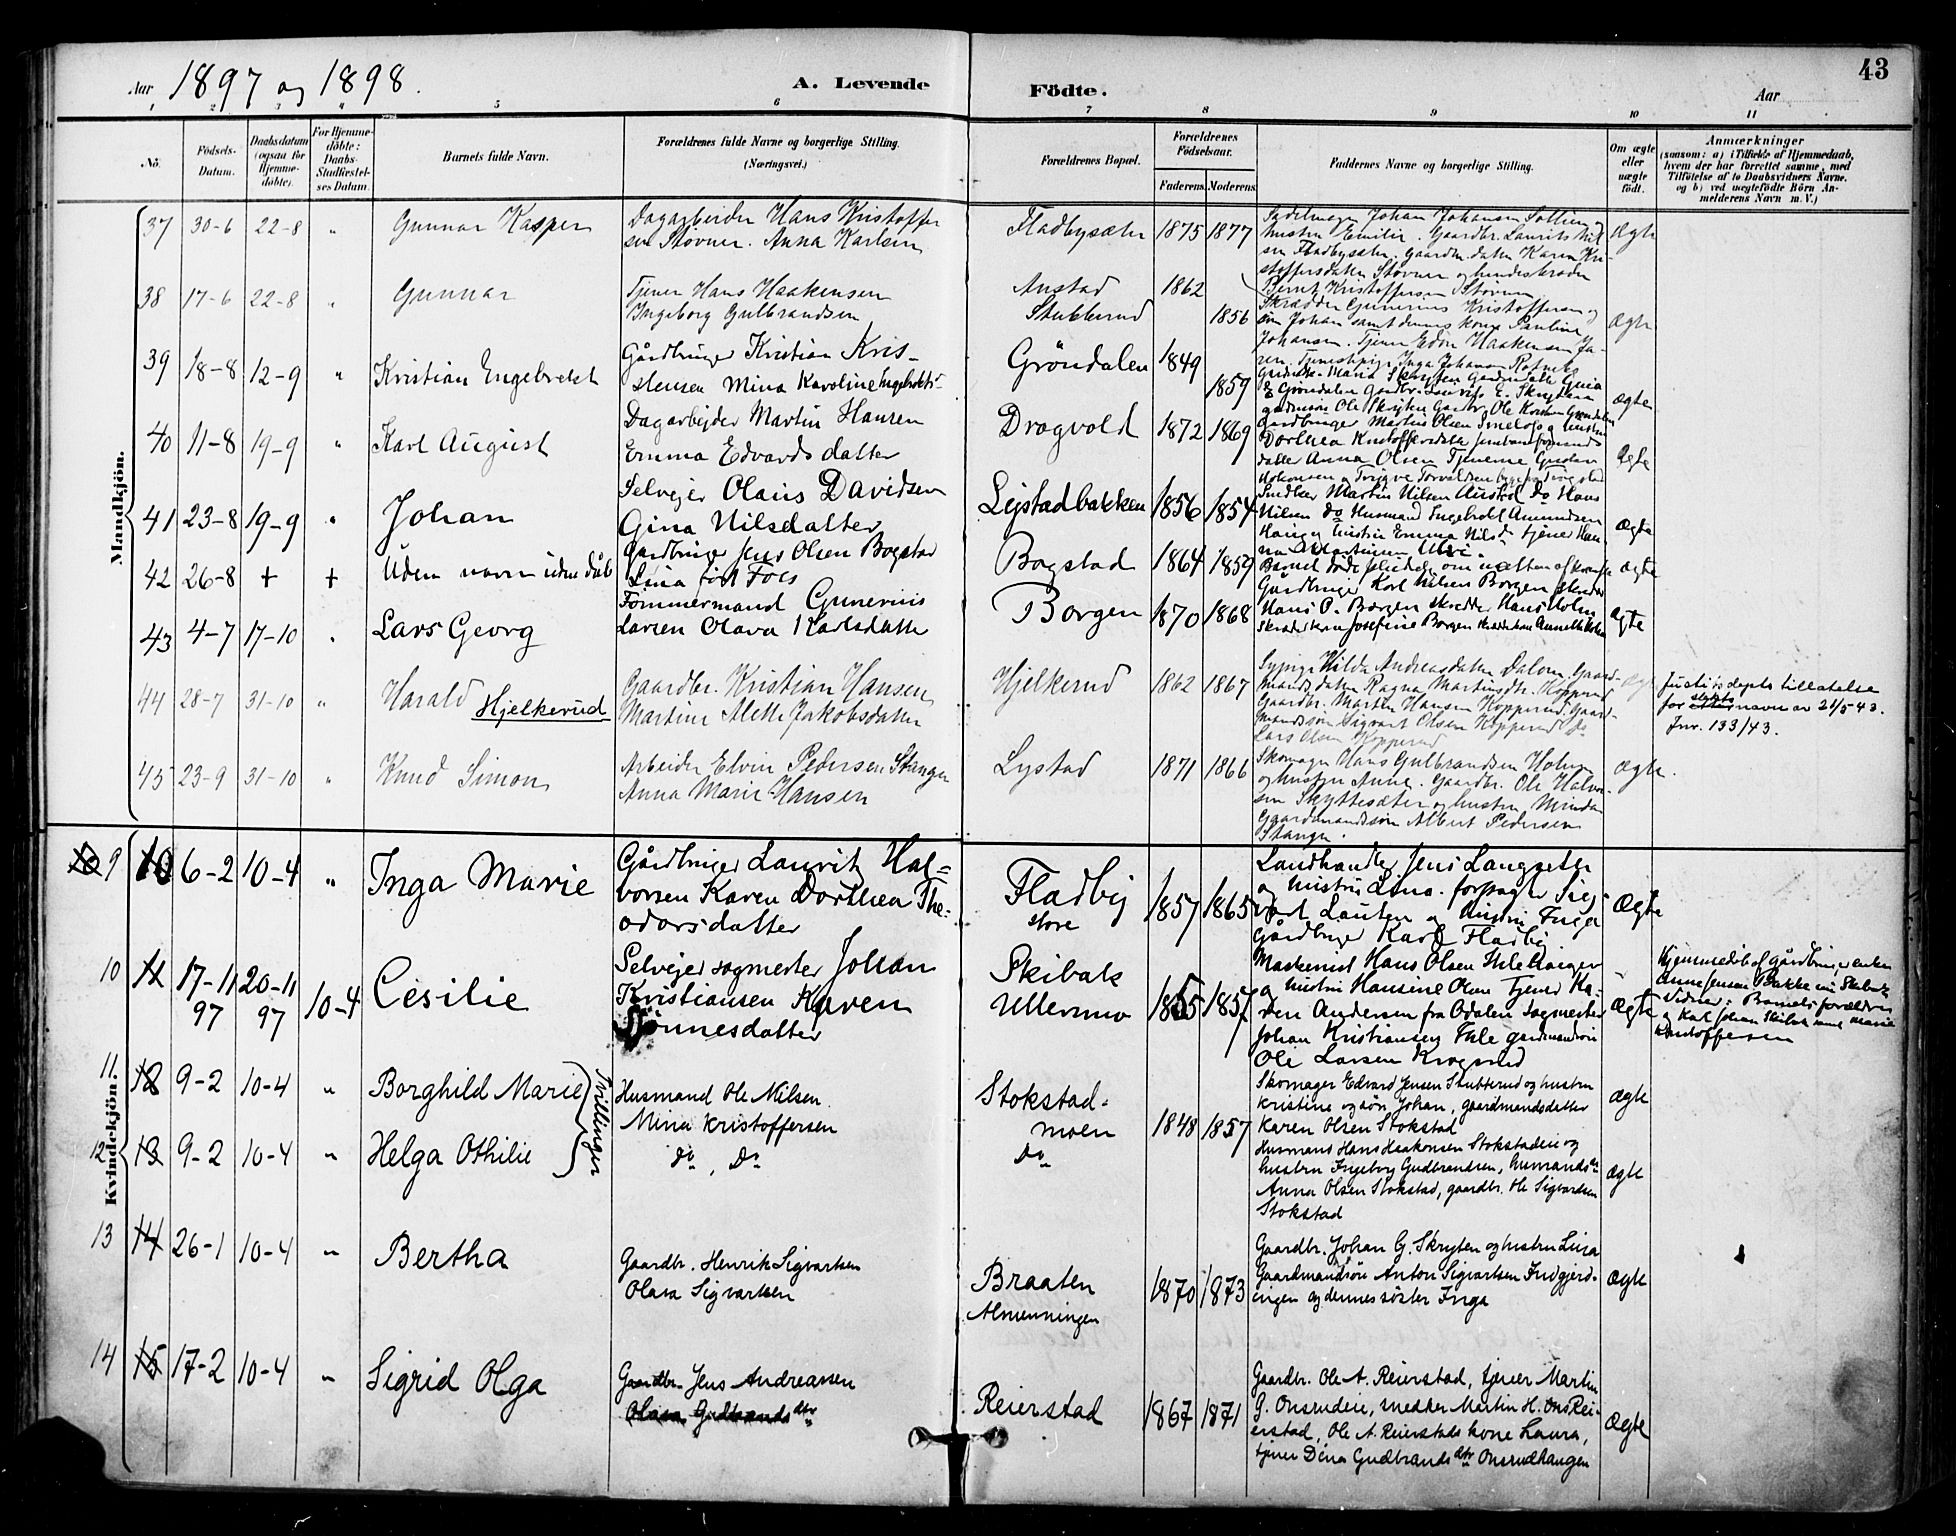 Aar 1897 og 1898. A. Levende Födte. Aar 43
1 2 3 4 5 6 7 8 9 10 11
No. Födsels-Datum. Daabsdatum (ogsaa for Hjemmedöbte). For Hjemmedöbte: Daabs-Stadfæstelses Datum. Barnets fulde Navn. Forældrenes fulde Navne og borgerlige Stilling. (Næringsvei.) Forældrenes Bopæl. Forældrenes Födselsaar. Faderens. Moderens. Faddernes Navne og borgerlige Stilling. Om ægte eller uægte födt. Anmærkninger (saasom: a) i Tilfælde af Hjemmedaab, hvem der har forrettet samme, med Tilföielse af to Daabsvidners Navne. og b) ved uægtefödte Börn Anmelderens Navn m. V.)
Mandkjön.
37 30-6 22-8 " Gunnar Kasper
Dagarbeider Hans Kristoffer
sen Stovner. Anna Karlsen
Fladbysæter 1875 1877
Sadelmager Johan Johansen
hustru Emilie. Gaardbr. Laurits Nil
sen Fladbysæter. Gaardm.datter Karen Kri-
stoffersdatter Stovner og hendes broder
Bernt Kristoffersen Stovner
Ægte
38 17-6 22-8 " Gunnar
Tjener Hans Haakensen
Ingeborg Gulbrandsen
Anstad
Stubberud
1862 1856
Skrædder Gunerius Kristoffersen og
søn Johan samt dennes kone Pauline
Johansen. Tjener Edvin Haakensen
Tjenestepige Inga Johansen
ægte
39 18-8 12-9 " Kristian Engebrekt
Gårdbruger Kristian Kris-
tensen Mina Karoline Engebrets
Gröndalen 1849 1859
Maria Skryten
Gröndalen Gårdbr. Laurits E. Skrytten
Ole Skrytten Gardbr. Ole Kristian Gröndalen
ægte
40 11-8 19-9 " Karl August
Dagarbejder Martin Hansen
Emma Edvardsdatter
Dragvold 1872 1869
Gardbruger Martin Olsen og hustru
Dorthea Kristoffersdatter
datter Anna Olsen Tjenerne Gustav
Hakonsen og Trygve Torvaldsen
Ægte
41 23-8 19-9 " Johan
Selvejer Olaus Davidsen
Gina Nilsdatter
Lystadbakken 1856 1854
Snedker Martin Nilsen Do Hans
Nilsen Do Husmand Ingebrekt Amundsen
Haug og hustru Emma Nilsd tjener
Martinsen
ægte
42 26-8 + + Uden navn uden dåb
Gardbruger Jens Olsen Bogstad
Lina født Foss
Bogstad 1864 1859
Barnet døde
ægte
43 4-7 17-10 " Lars Georg
Tømmermand Gunerius
Larsen Olava Karlsdatter
Borgen 1870 1868
Gårdbruger Karl Nilsen Borgen skræder
Hans O. Borgen skrædder Hans Holm
Josefine Borgen
ægte
44 28-7 31-10 " Harald Hjelkerud
Gaardbr. Kristian Hansen
Martine Alette Jakobsdatter
Hjelkerud 1862 1867
Sypige Hilda Andreasdatter Dalom, Gaard-
mandsdatter Ragna Martinsdtr. Kopperud
Gaardbr. Martin Hansen Kopperud Gaard-
mandssøn Sigvart Olsen Kopperud Do
Lars Olsen Kopperud
ægte
Justisdepts tillatelse
for slektsnavn av 21/5 43.
Jnr. 133/43.
45 23-9 31-10 " Knud Simon
Arbeider Elvin Pedersen Stangen
Anna Marie Hansen
Lystad 1871 1866
Skomager Hans Gulbrandsen Holm
og hustru Anne. Gaardbr. Ole Halvor-
sen Skyttesæter og hustru Minda
Gaardmandssøn Albert Pedersen
Stangen.
ægte.
Kvindekjön.
9 10 6-2 10-4 " Inga Marie
Gårdbruger Laurits Hal-
vorsen Karen Dorthea The-
odorsdatter
Fladby
store
1857 1865
Landhandler Jens Langseter
og hustru Lina. forpagter Sig-
vart Lauten og hustru Inga
Gårdbruger Karl Fladby
Ægte
10 11 17-11 97 20-11 97 10-4 Cesilie
Selvejer sagmester Johan
Kristiansen Karen
Tønnesdatter
Skibak
Ullerumo
1855 1857
Maskenist Hans Olsen Ihlehaugen
og hustru Hansine Olsen Tjener Ka-
ren Andersen fra Odalen Sagmester
Johan Kristiansen Ihle gardmandssøn
Ole Larsen Krogsrud
Ægte
Hjemmedøbt af gårdbruger enken
Anne Jensen Bakke
Vidner: Barnets forældre
og Karl Johan Skibak samt Marie
Kristoffersen
11. 12 9-2 10-4 " Borghild Marie
Tvillinger
Husmand Ole Nilsen
Mina Kristoffersen
Stokstad-
moen
1848 1857
Skomager Edvard Jensen Stubberud og hustru
Kristine og søn Johan, gaardmandsdatter
Karen Olsen Stokstad
ægte
12 13 9-2 10-4 " Helga Othilie
Do, Do
Do
Husmand Hans Haakonsen Stokstadeie og
hustru Ingeborg Gudbrandsen, husmandsdr
Anna Olsen Stokstad, gaardbr. Ole Sigvartsen
Stokstad
ægte
13 14 26-1 10-4 " Bertha
Gaardbr. Henrik Sigvartsen
Olava Sigvartsen
Braaten
Almenningen
1870 1873
Gaardbr. Johan G. Skryten og hustru Lina
Gaardmandssøn Anton Sigvartsen Indgjerd-
ingen og dennes søster Inga
ægte
14 15 17-2 10-4 " Sigrid Olga
Gaardbr. Jens Andreassen
Olava Gudbrandsdtr
Reierstad 1867 1871
Gaardbr. Ole A. Reierstad, tjener Martin
G. Onsrudeie, snedker Martin H. Ons Rei-
erstad, Ole A. Reierstads kone Laura,
tjener Dina Gudbrandsdtr Onsrudhaugen
Ægte